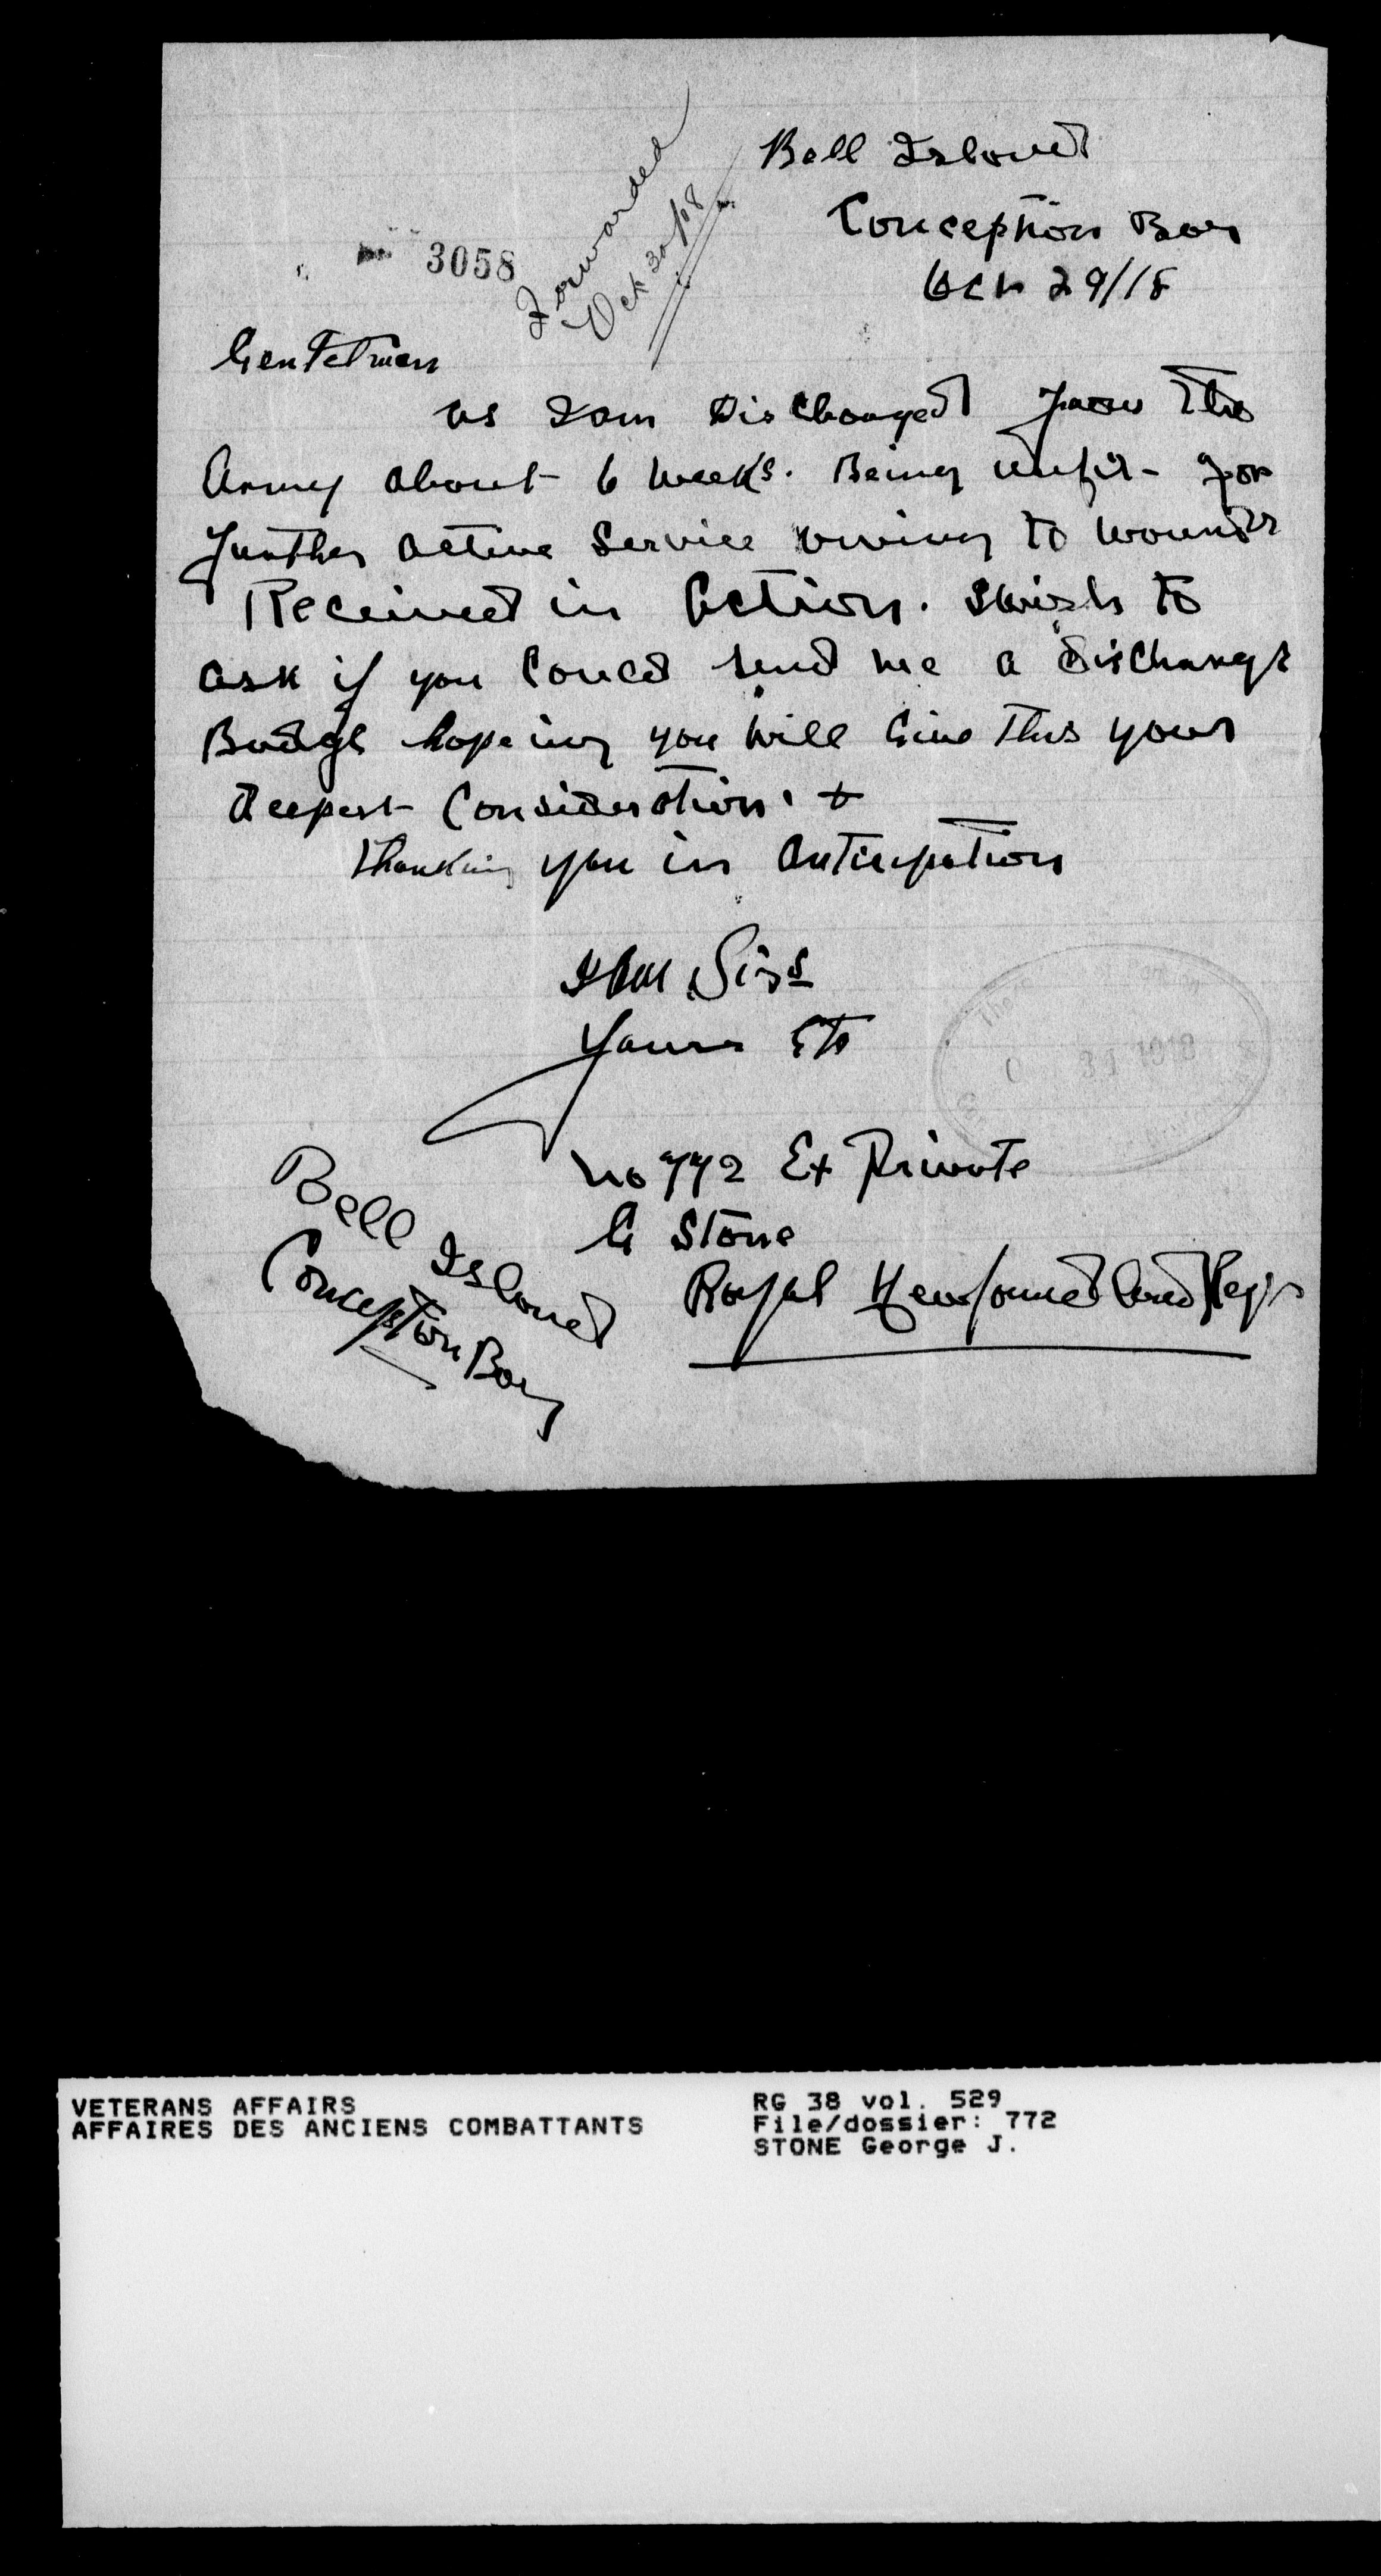 Bell Island
Conception Bay
Oct 29/18
3058
Forwarded
Oct 30/18
Gentelmen
as I am Discharged from the
Army about 6 weeks. Being unfit for
further active Service owing to wounds
Received in Action. I wish to
ask if you Could send me a discharge
Badge hopeing you Will Give this your
deepest Consideration. +
thanking you in Anticipation
I Am Sirs
Yours Etc
31 1918
No 772 Ex Private
G Stone
Royal Newfoundland Regt
Bell Island
Conception Bay
VETERANS AFFAIRS
AFFAIRES DES ANCIENS COMBATTANTS
RG 38 vol. 529
File/dossier: 772
STONE George J.